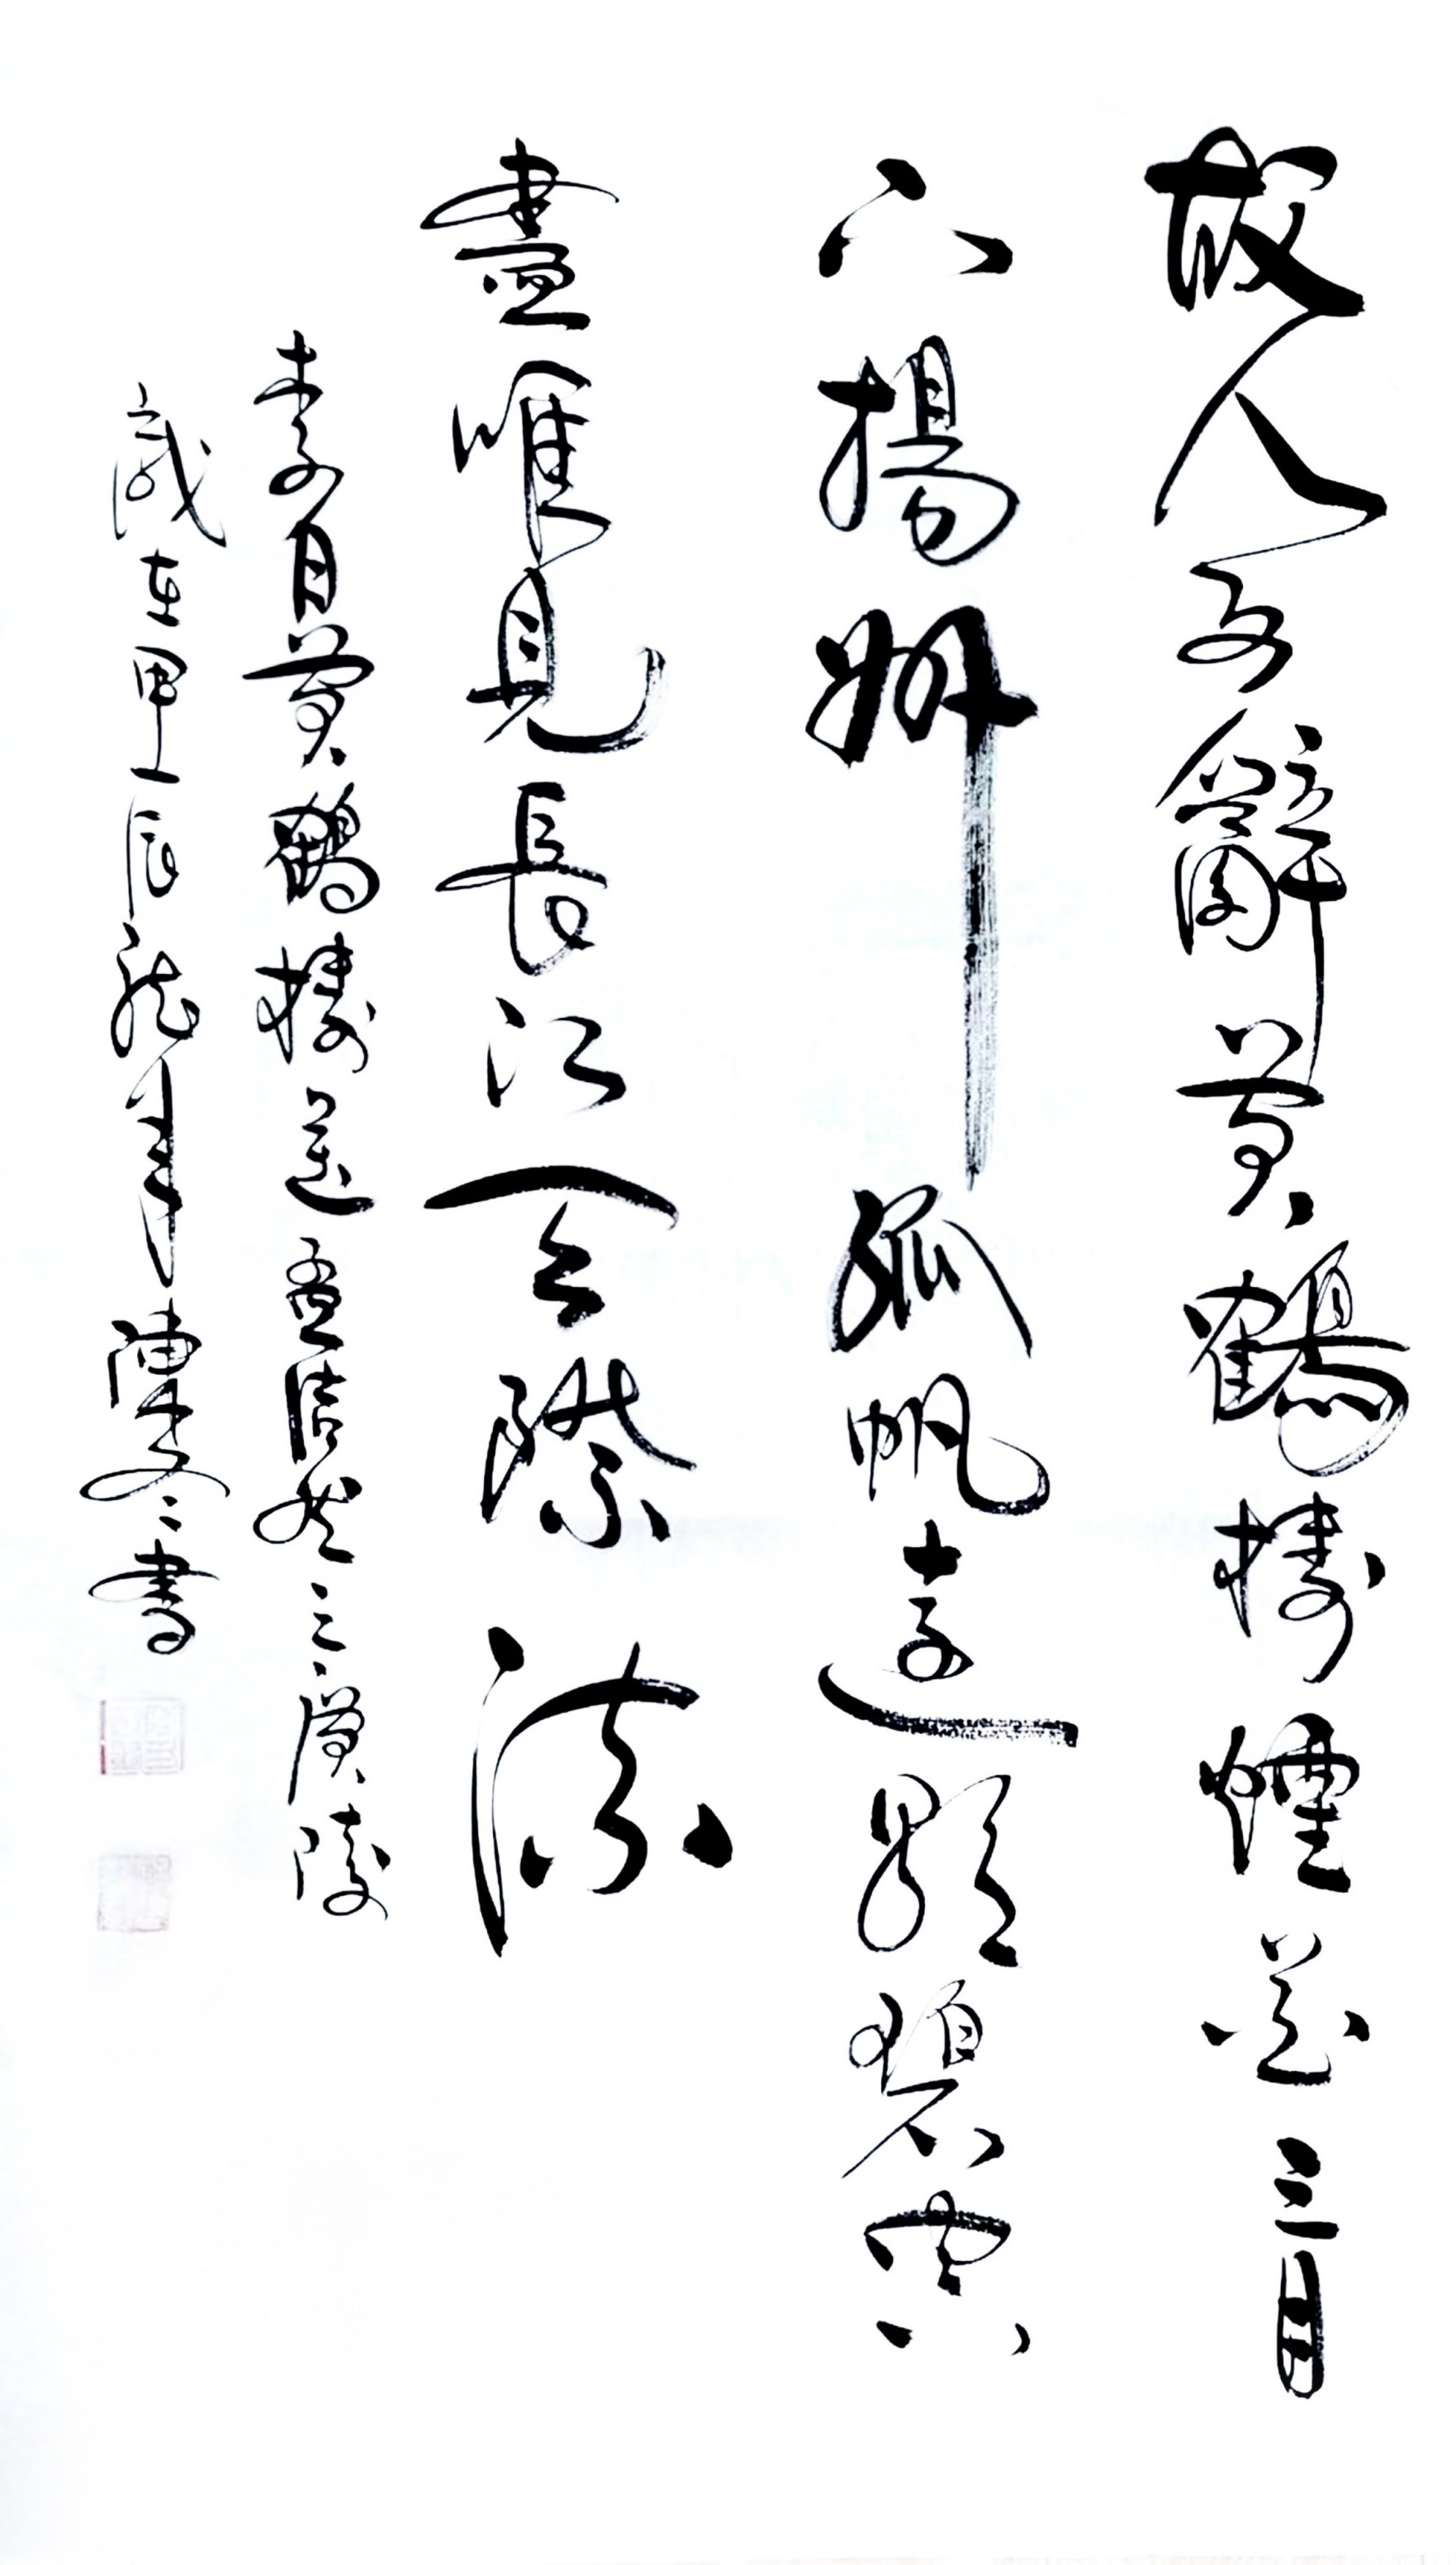 故人西辭黄鶴樓煙花三月
下揚州孤帆遠影碧空
盡唯見長江天際流
李白黄鶴樓送孟浩然之廣陵
歲在甲辰龍年陳文々書